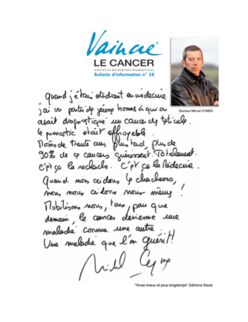 Vaincre
LE CANCER
Bulletin d'information n° 38
Docteur Michel CYMES
Quand j'étais étudiant en médecine
j'ai vu partir de jeunes hommes à qui on
avait diagnostiqué un cancer du testicule.
Le pronostic était effroyable.
Moins de trente ans plus tard, plus de
90% de ces cancers guérissent. Totalement.
C'est ça la recherche. C'est ça la Médecine.
Quand nous aidons les chercheurs,
nous nous aidons nous-mêmes !
Mobilisons nous, tous, pour que
demain, le cancer devienne une
maladie comme une autre.
Une maladie que l'on guérit !!
"Vivez mieux et plus longtemps" Editions Stock